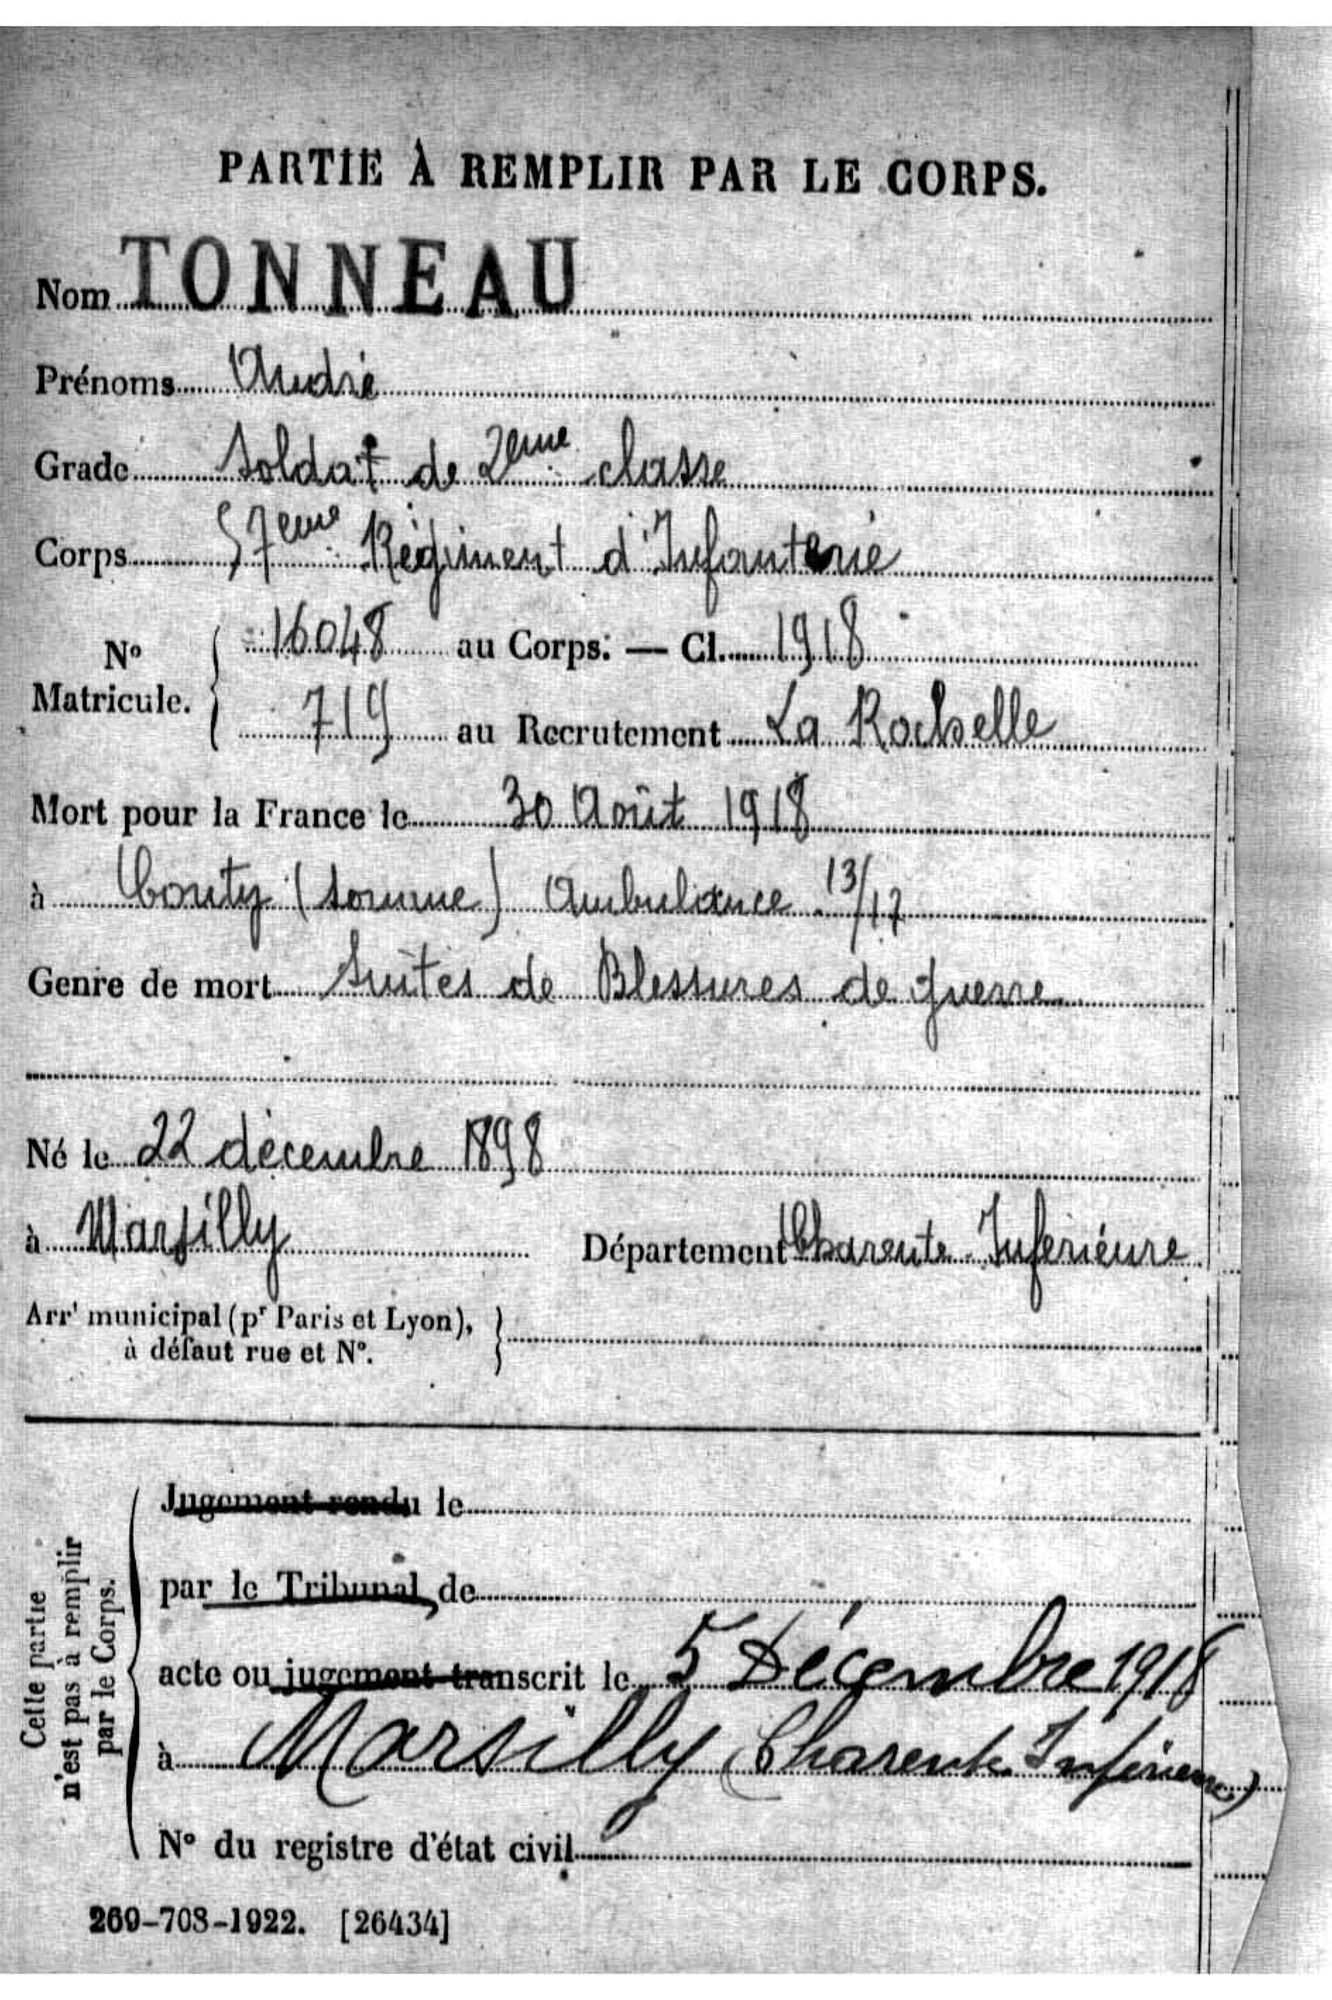 PARTIE À REMPLIR PAR LE CORPS.
Nom TONNEAU
Prénoms André
Grade Soldat de 2eme classe
Corps 57eme Régiment d'Infanterie
N° Matricule. 16048 au Corps. — Cl. 1918
719 au Recrutement La Rochelle
Mort pour la France le 30 Août 1918
à Conty (Somme) Ambulance 13/17
Genre de mort Suites de Blessures de guerre
Né le 22 décembre 1898
à Marsilly Département Charente Inférieure
Arrt municipal (pr Paris et Lyon),
à défaut rue et N°.
Cette partie
n'est pas à remplir
par le Corps.
Jugement rendu le
par le Tribunal de
acte ou jugement transcrit le 5 Décembre 1918
à Marsilly (Charente Inférieure)
N° du registre d'état civil
269-708-1922. [26434]